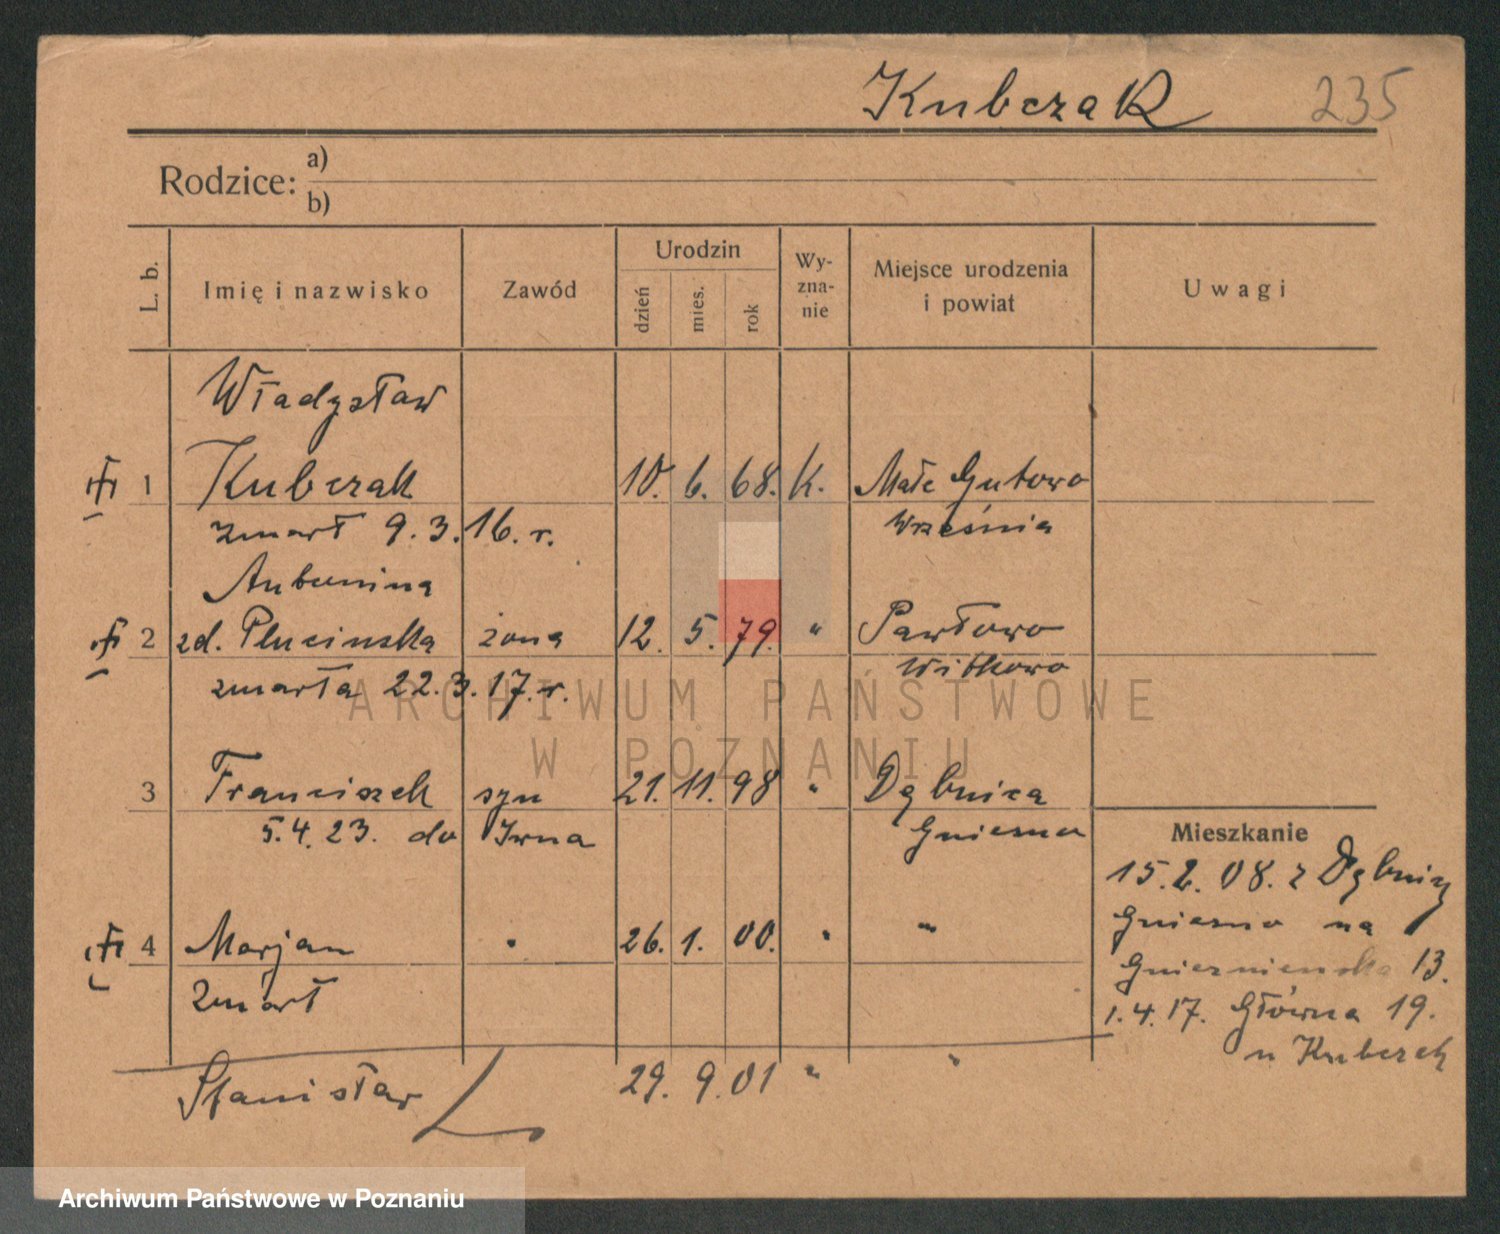 Kubczak 235
Rodzice: a)
b)
L. b. Imię i nazwisko Zawód Urodzin dzień mies. rok Wy-zna-nie Miejsce urodzenia i powiat Uwagi
Władysław
1 Kubczak 10. 6. 68. K. Małe Gutowo
zmarł 9.3.16. r. Września
Antonina
2 zd. Plucinska żona 12. 5. 79. " Pawłowo
zmarła 22.3.17. r. Witkowo
ARCHIWUM PAŃSTWOWE
W POZNANIU
3 Franciszek syn 21. 11. 98 " Dębnica
5.4.23. do Gniezno
4 Marjan " 26. 1. 00. " "
Zmarł
Stanisław 29. 9. 01 " "
Mieszkanie
15.2.08. z Dębnicy
Gniezno na
Gnieznienska 13.
1.4.17. Główna 19.
u Kubczak
Archiwum Państwowe w Poznaniu